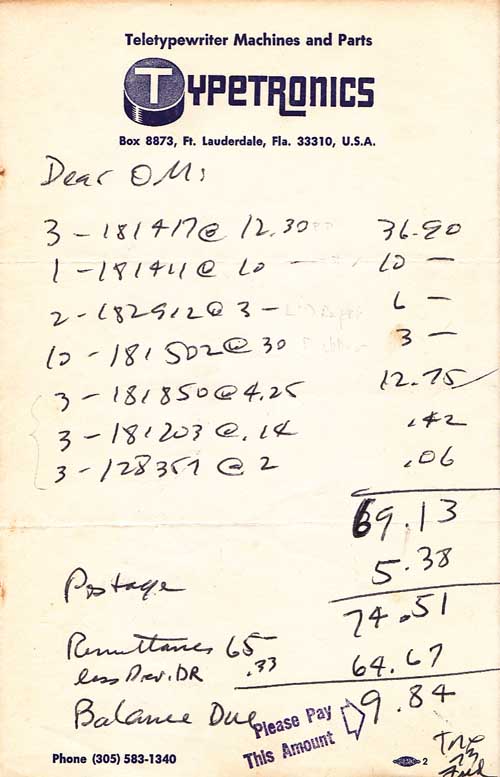 Teletypewriter Machines and Parts
TYPETRONICS
Box 8873, Ft. Lauderdale, Fla. 33310, U.S.A.
Dear OM:
3 - 181417 @ 12.30 36.90
1 - 181411 @ 10 — 10 —
2 - 182912 @ 3 - 6 —
10 - 181502 @ 30 3 —
3 - 181850 @ 4.25 12.75
3 - 181203 @ .14 .42
3 - 128357 @ 2 .06
69.13
Postage 5.38
74.51
Remittances 65
less Prev. DR .33 64.67
Balance Due 9.84
Please Pay
This Amount
Phone (305) 583-1340
2
73